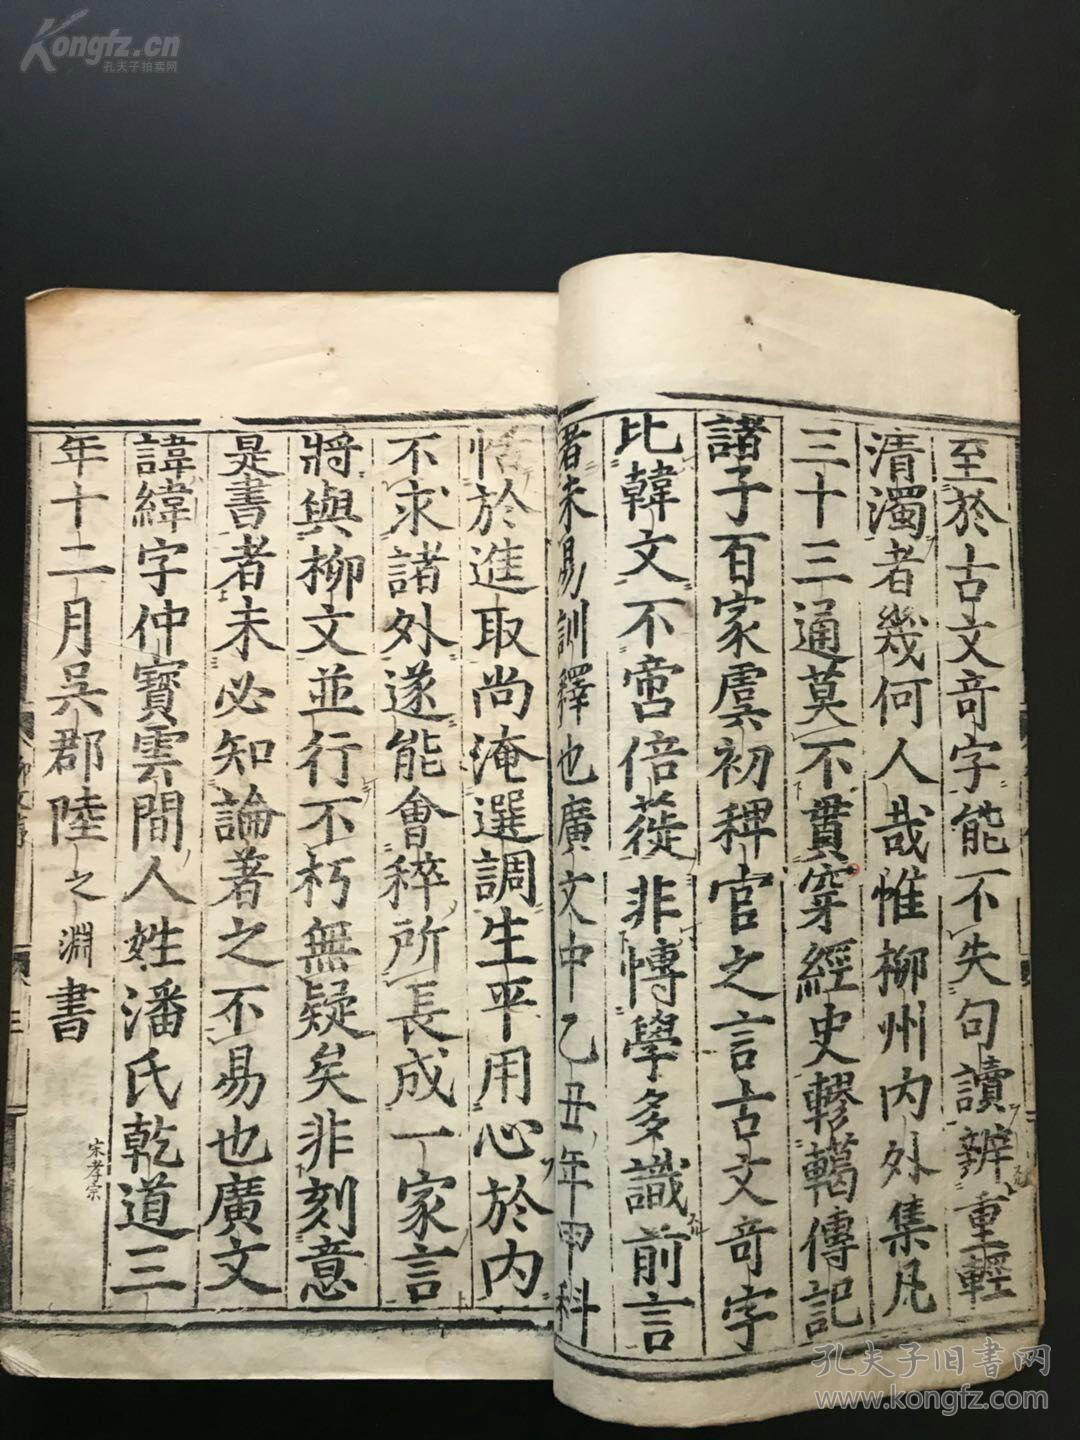 Kongfz.cn
孔夫子拍卖网
至於古文奇字能不失句讀辨重輕
清濁者幾何人哉惟柳州内外集凡
三十三通莫不貫穿經史轇轕傳記
諸子百家虞初稗官之言古文奇字
比韓文不啻倍蓰非愽學多識前言
者未易訓釋也廣文中乙丑年甲科
恬於進取尚淹選調生平用心於内
不求諸外遂能會稡所長成一家言
將與柳文並行不朽無疑矣非刻意
是書者未必知論著之不易也廣文
諱緯字仲寶雲間人姓潘氏乾道三
宋孝宗
年十二月吳郡陸之淵書
孔夫子旧书网
www.kongfz.com